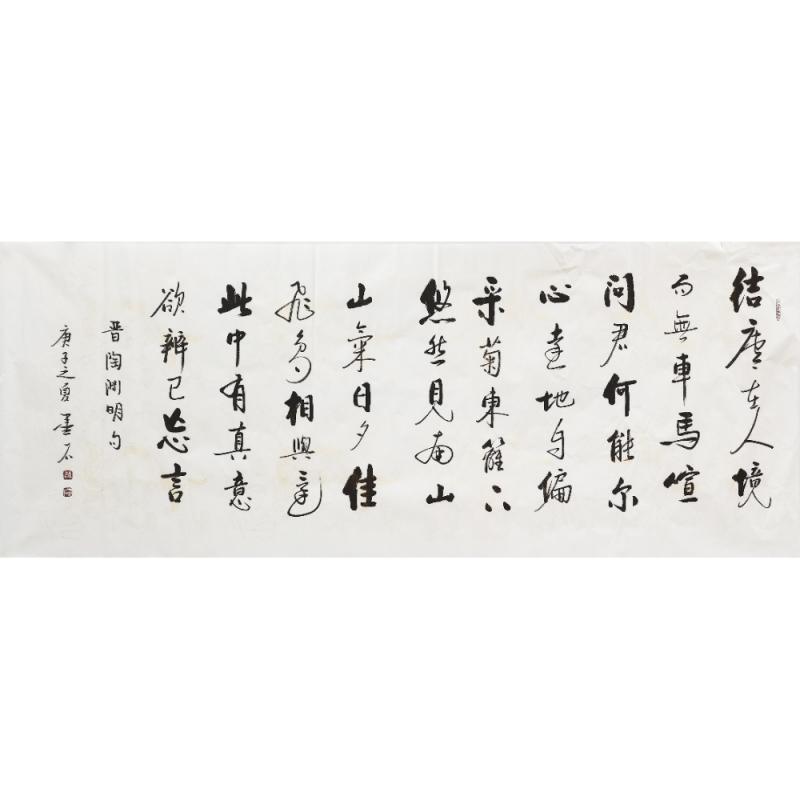 結廬在人境
而無車馬喧
問君何能尔
心遠地自偏
采菊東籬下
悠然見南山
山氣日夕佳
飛鳥相與還
此中有真意
欲辨已忘言
晋陶渊明句
庚子之夏墨石